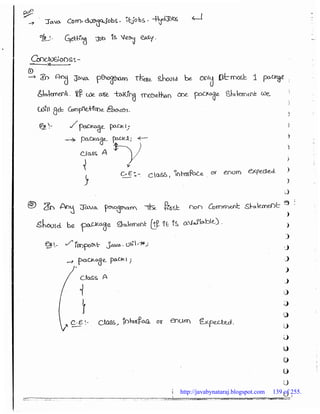 → Java com. durgajobs. itjobs. HydJobs
Eg:- Getting Job is very easy.
Conclusions:-
① → In Any Java program There should be only At-most 1 package
statement. If we are taking more than one package statement we
will get CompileTime Error.
Eg:- ✓ package pack1;
→ package pack2; ←
class A
{
}
C.E:- class, interface or enum expected.
② In Any Java program the first non comment statement
should be package statement [if it is available].
Eg:- import java.util.*;
→ package pack1;
class A
{
}
C.E:- class, interface or enum expected.
http://javabynataraj.blogspot.com 139 of 255.